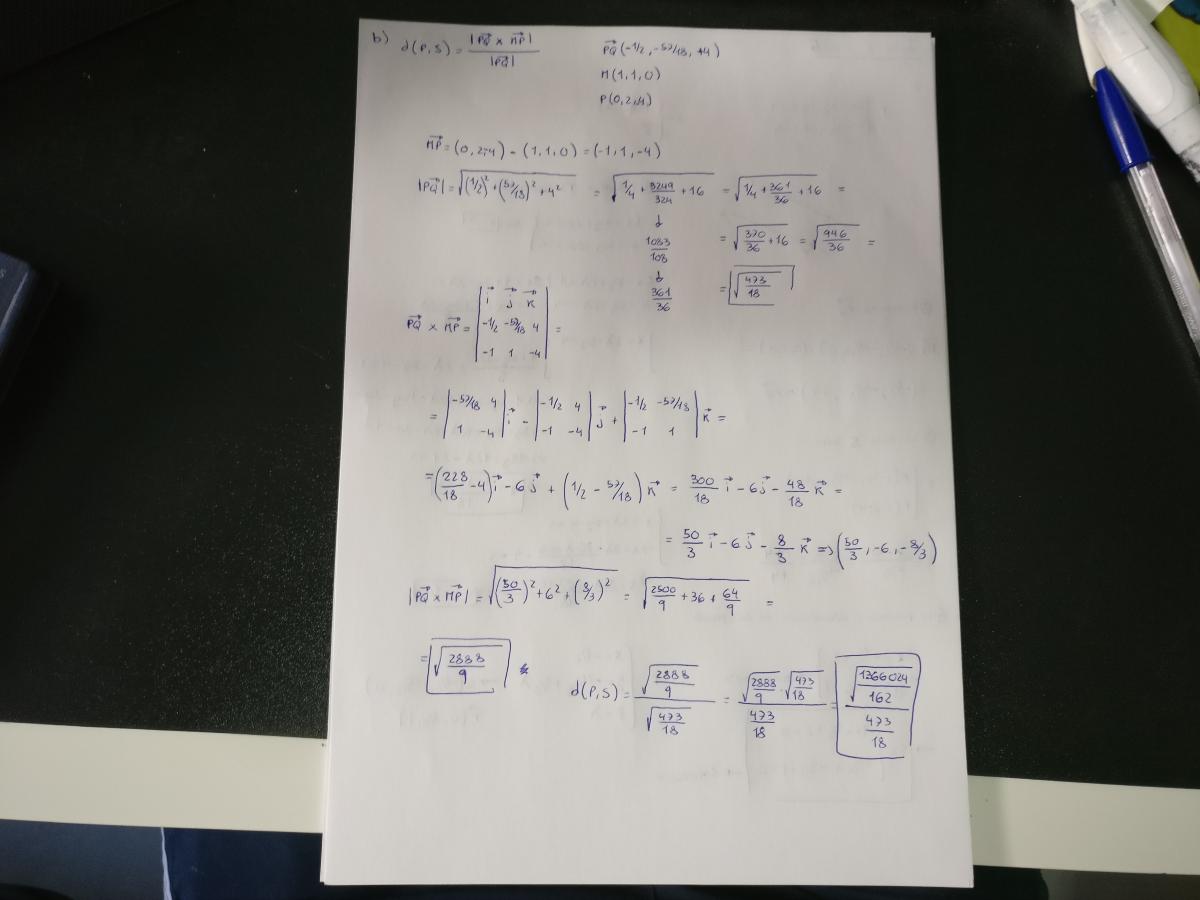 b) d(P,S) = |PQ⃗ × MP⃗| / |PQ⃗|
PQ⃗(-1/2, -57/18, +4)
M(1,1,0)
P(0,2,4)
MP⃗ = (0,2,4) - (1,1,0) = (-1,1,-4)
|PQ⃗| = √((1/2)² + (57/18)² + 4²) = √(1/4 + 3249/324 + 16) = √(1/4 + 361/36 + 16) =
↓ 1083/108 ↓ 361/36
= √(370/36 + 16) = √(946/36) =
= √(473/18)
PQ⃗ × MP⃗ = | i⃗ j⃗ k⃗ |
| -1/2 -57/18 4 | =
| -1 1 -4 |
= | -57/18 4 | i⃗ - | -1/2 4 | j⃗ + | -1/2 -57/18 | k⃗ =
| 1 -4 | | -1 -4 | | -1 1 |
= (228/18 - 4) i⃗ - 6 j⃗ + (1/2 - 57/18) k⃗ = 300/18 i⃗ - 6j⃗ - 48/18 k⃗ =
= 50/3 i⃗ - 6 j⃗ - 8/3 k⃗ => (50/3, -6, -8/3)
|PQ⃗ × MP⃗| = √((50/3)² + 6² + (8/3)²) = √(2500/9 + 36 + 64/9) =
= √(2888/9)
d(P,S) = √(2888/9) / √(473/18) = √(2888/9) · √(473/18) / (473/18) = √(1366024/162) / (473/18)